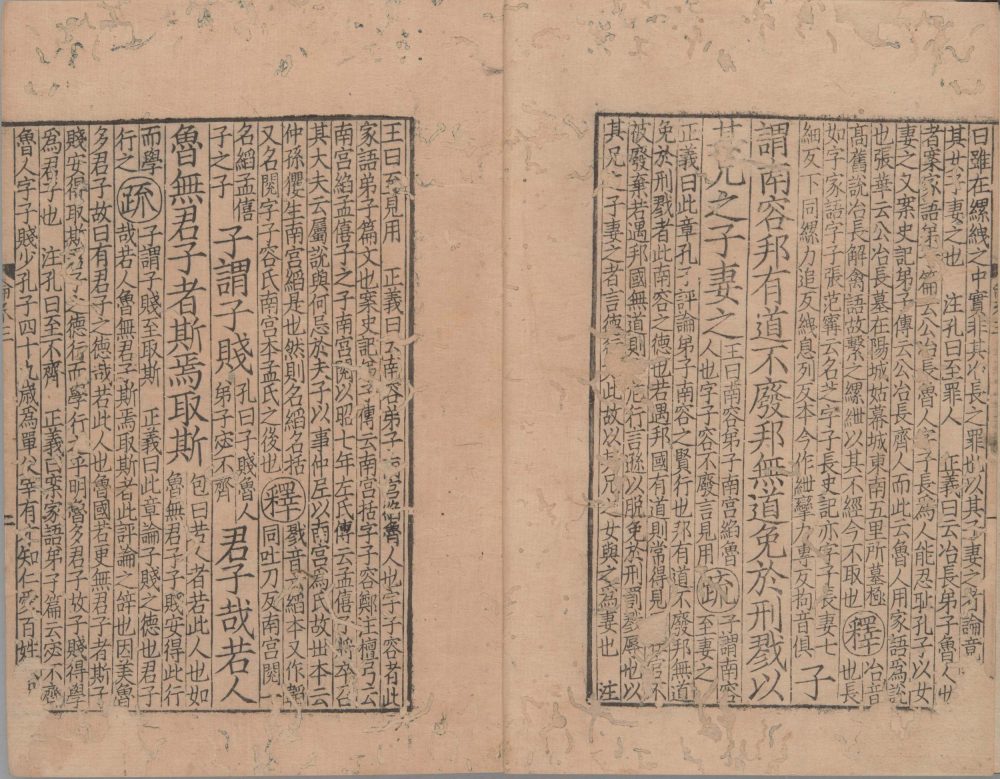 曰雖在縲絏之中實非其以長之罪也以其子妻之者論竟
其女子妻之也 注孔曰至罪人 正義曰云冶長弟子魯人也
者案家語弟子篇云公冶長魯人字子長爲人能忍恥孔子以女
妻之又案史記弟子傳云公冶長齊人而此云魯人用家語爲説
也張華云公冶長墓在陽城姑幕城東南五里所墓極
高舊説冶長解禽語故繫之縲紲以其不經今不取也 釋 冶音也長
如字家語字子張范寗云名芝字子長史記亦字子長妻七
細反下同縲力追反絏息列反本今作紲攣力專反拘音俱 子
謂南容邦有道不廢邦無道免於刑戮以
其兄之子妻之 王曰南容弟子南宮縚魯人也字子容不廢言見用 疏 子謂南容至妻之
正義曰此章孔子評論弟子南容之賢行也邦有道不廢邦無道
免於刑戮者此南容之德也若遇邦國有道則常得見官不
被廢棄若遇邦國無道則危行言遜以脱免於刑罰戮辱也以
其兄之子妻之者言德行此故以其兄之女與之爲妻也 注
王曰至見用 正義曰云南容弟子南宮縚魯人也字子容者此
家語弟子篇文也案史記弟子傳云南宮括字子容鄭注檀弓云
南宮縚孟僖子之子南宮閱以昭七年左氏傳云孟僖將卒召
其大夫云屬説與何忌於夫子以事仲尼以南宮爲氏故世本云
仲孫玃生南宮縚是也然則名縚名括
又名閱字子容氏南宮本孟氏之後也 釋 戮音六縚本又作韜同吐刀反南宮閱一
名縚孟僖子之子 子謂子賤 孔曰子賤魯人弟子宓不齊 君子哉若人
魯無君子者斯焉取斯 包曰若人者若此人也如魯無君子子賤安得此行
而學行之 疏 子謂子賤至取斯 正義曰此章論子賤之德也君子
哉若人魯無君子斯焉取斯者此評論之辭也因美魯
多君子故曰有君子之德哉若此人也魯國若更無君子者斯子
賤安得取斯君子之德行而學行之乎明魯多君子故子賤得學
爲君子也 注孔曰至不齊 正義曰案家語弟子篇云宓不齊
魯人字子賤少孔子四十九歲爲單父宰有才知仁愛百姓